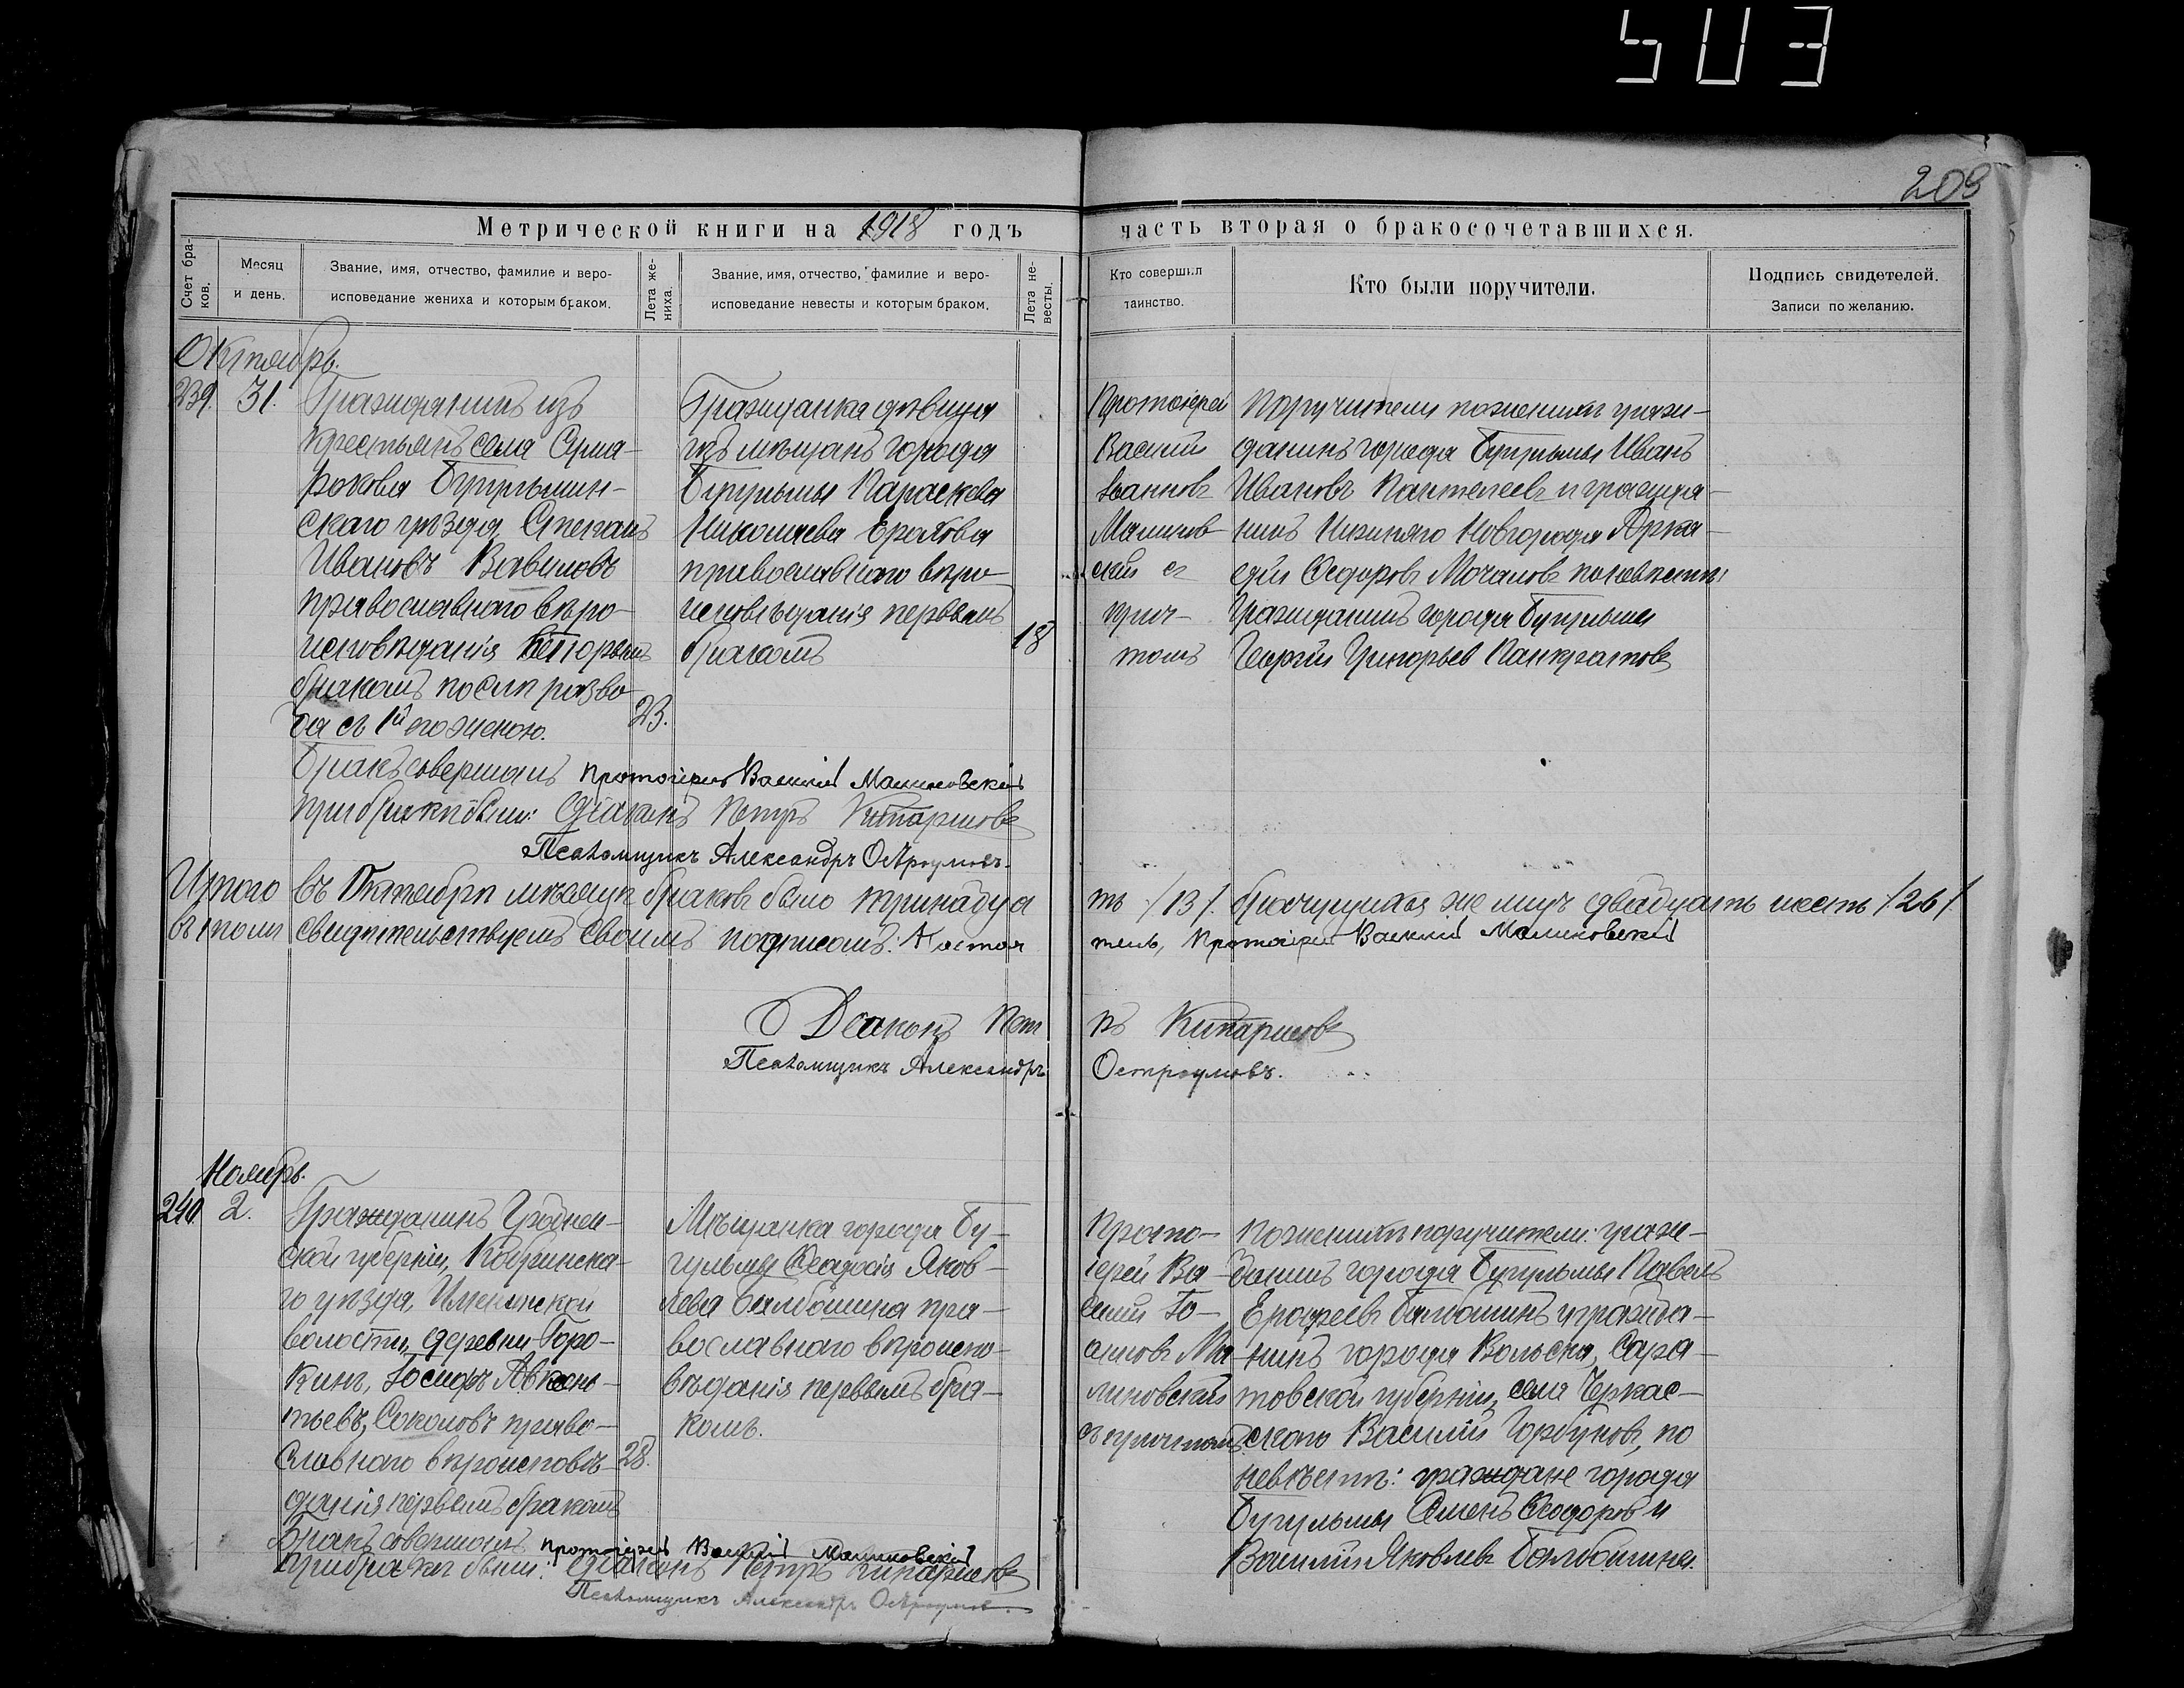 503
209
Метрической книги на 1918 годъ
часть вторая о бракосочетавшихся.
Счет бра-
ков.
Месяц
и день.
Звание, имя, отчество, фамилие и веро-
исповедание жениха и которым браком.
Лета же-
ниха.
Звание, имя, отчество, фамилие и веро-
исповедание невесты и которым браком.
Лета не-
весты.
Кто совершил
таинство.
Кто были поручители.
Подпись свидетелей.
Записи по желанию.
Октябрь.
239. 31.
Гражданинъ изъ
крестьянъ села
Бугульмин-
скаго уѣзда, Степанъ
Ивановъ Вавиловъ
православнаго вѣро-
исповѣданія вторымъ
бракомъ послѣ разво-
да съ 1й его женою.
23.
Гражданка дѣвица
изъ мѣщанъ города
Бугульмы Параскева
Николаева Ерахова
православнаго вѣро-
исповѣданія первымъ
бракомъ
18
Протоіерей
Василій
Іоанновъ
Малинов-
скій съ
прич-
томъ
Поручители по женихѣ граж-
данинъ города Бугульмы Иванъ
Ивановъ Пантелеевъ и гражда-
нинъ Нижняго Новгорода Арка-
дій Ѳедоровъ Мочаловъ по невѣстѣ
гражданинъ города Бугульмы
Георгій Григорьевъ Панкратовъ
Бракъ совершалъ Протоіерей Василій Малиновскій
При бракѣ были: Діаконъ Петръ Кипарисовъ
Псаломщикъ Александръ Остроумовъ.
Итого въ Октябрѣ мѣсяцѣ браковъ было тринадца
ть /13/. брачущихся же лицъ двадцать шесть /26/.
въ томъ свидѣтельствуемъ своимъ подписомъ: Настоя
тель, Протоіерей Василій Малиновскій
Діаконъ Пет
ръ Кипарисовъ
Псаломщикъ Александръ
Остроумовъ.
Ноябрь.
240. 2.
Гражданинъ Гроднен-
ской губерніи, Кобринска-
го уѣзда,
волости, деревни Горо-
Іосифъ
Соколовъ право-
славнаго вѣроисповѣ-
данія первымъ бракомъ
28.
Мѣщанка города Бу-
гульмы Ѳеодосія Яков-
лева Балбошина пра-
вославнаго вѣроиспо-
вѣданія первымъ бра-
комъ.
Прото-
іерей Ва-
силій Іо-
анновъ Ма-
линовскій
съ причтомъ
По женихѣ поручители: граж-
данинъ города Бугульмы Павелъ
Ерофеевъ Балбошинъ и гражда-
нинъ города Вольска, Сара-
товской губерніи, села Черкас-
скаго Василій Горбуновъ, по
невѣстѣ: граждане города
Бугульмы Семенъ Ѳеодоровъ и
Василій Яковлевъ Балбошины.
Бракъ совершалъ Протоіерей Василій Малиновскій
При бракѣ были: Діаконъ Петръ Кипарисовъ
Псаломщикъ Александръ Остроумовъ.